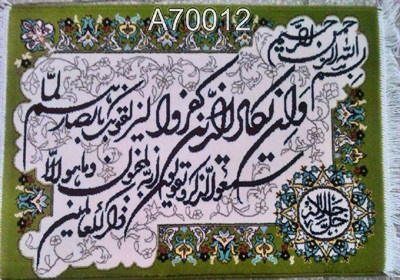 A70012
بسم الله الرحمن الرحیم
وان یکاد الذین کفروا لیزلقونک بابصارهم لما
سمعوا الذکر و یقولون انه لمجنون و ما هو الا
ذکر للعالمین